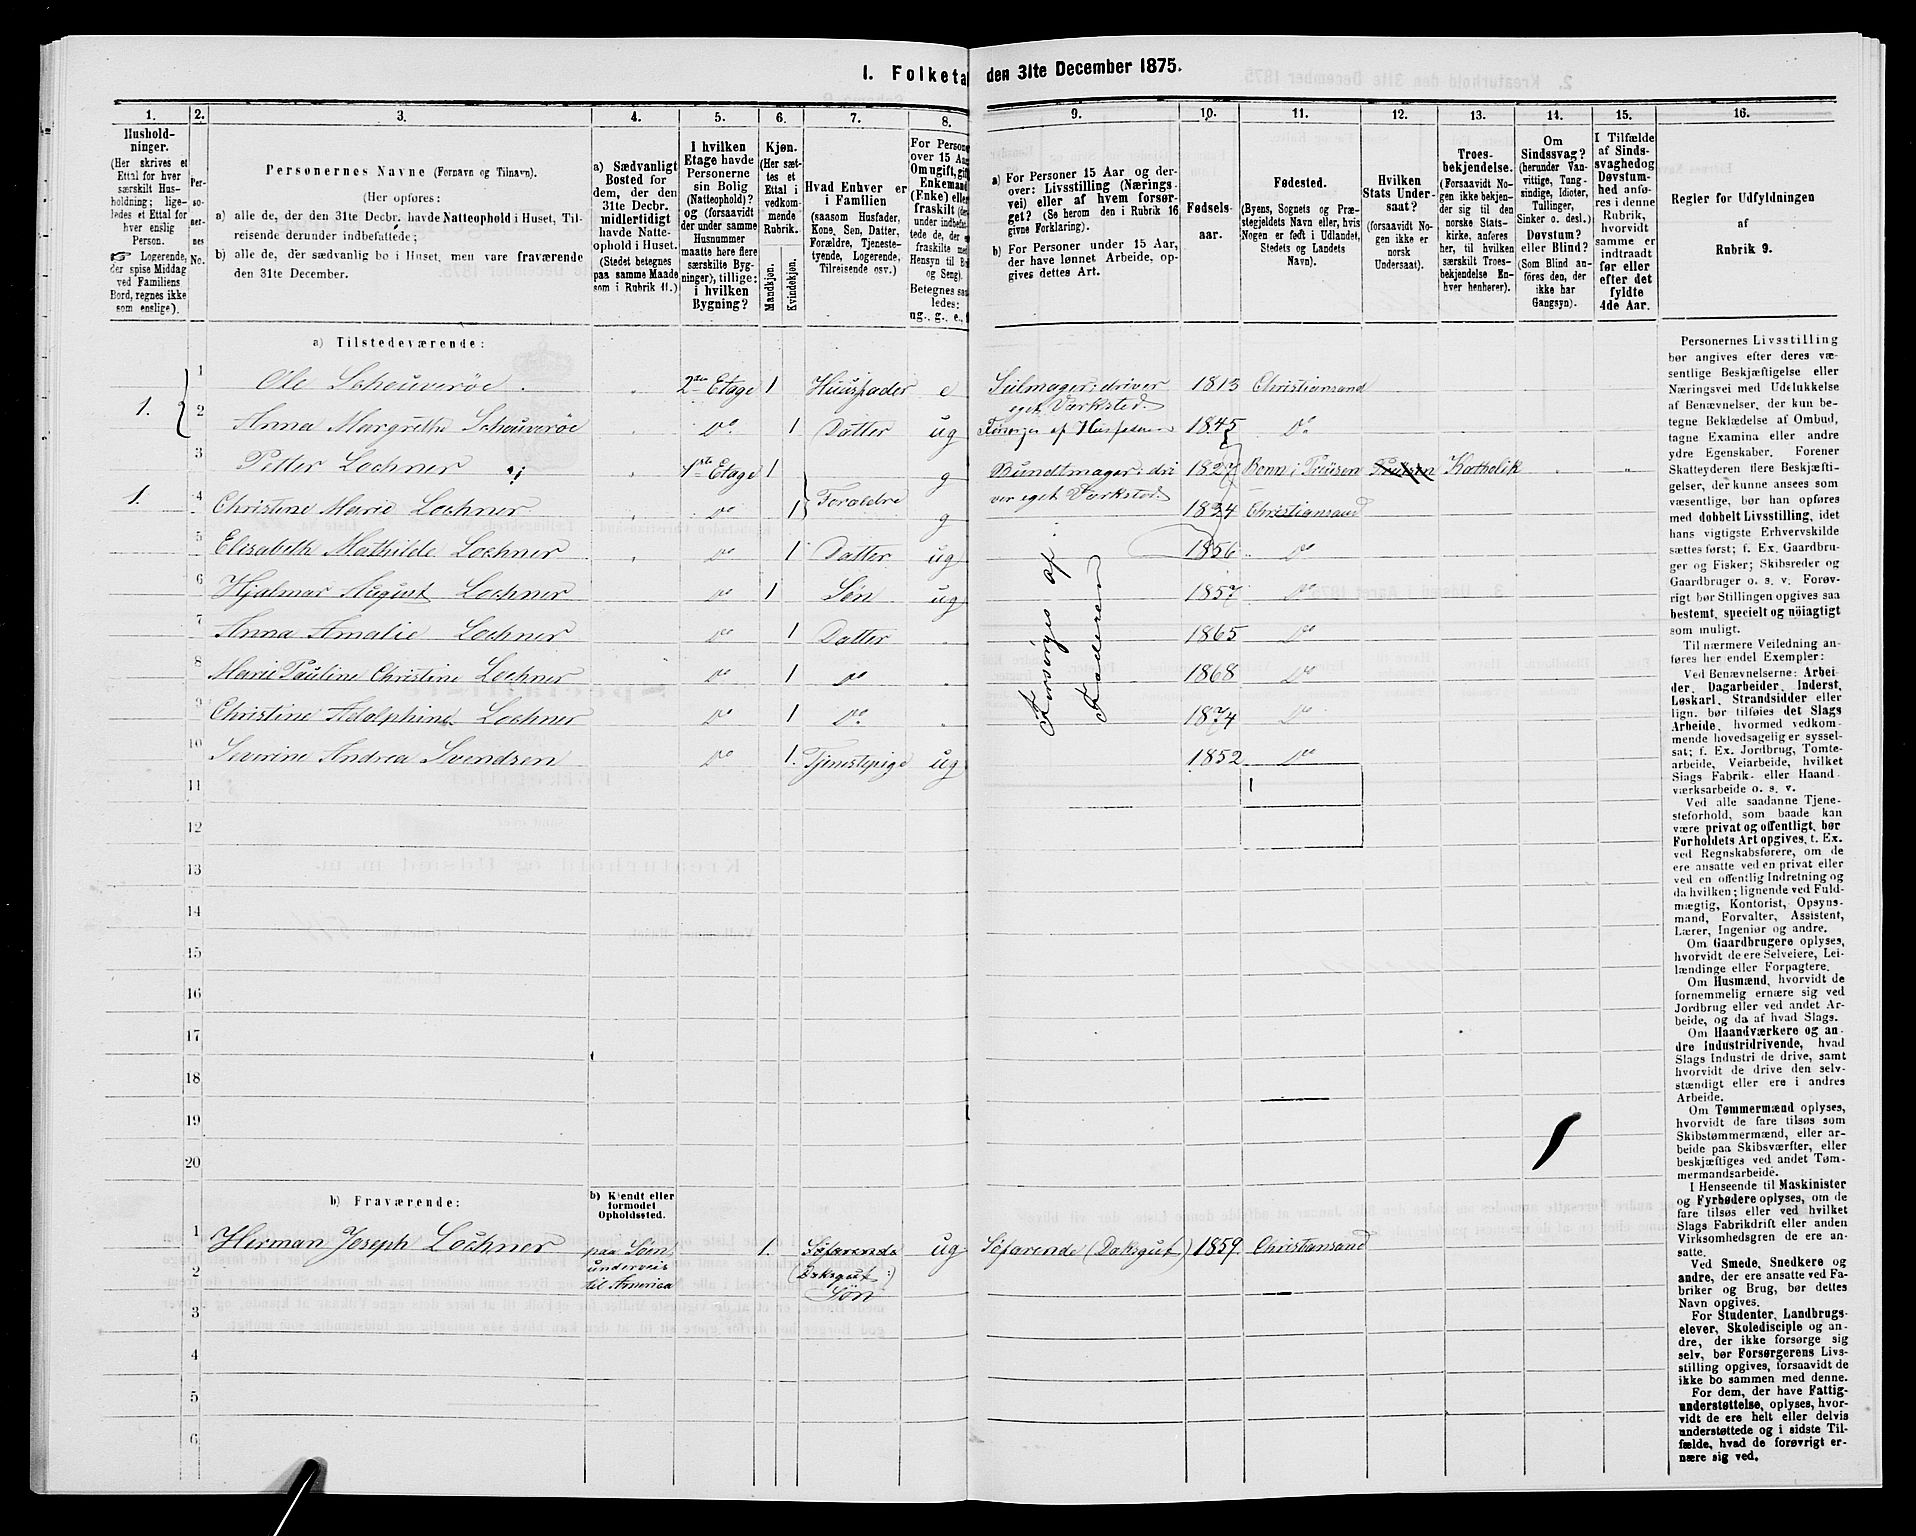 I. Folketa den 31te December 1875.
1. 2. 3. 4. 5. 6. 7. 8. 9. 10. 11. 12. 13. 14. 15. 16.
Hushold-
ninger.
(Her skrives et
Ettal for hver
særskilt Hus-
holdning; lige-
ledes et Ettal for
hver enslig
Person.
☞ Logerende,
der spise Middag
ved Familiens
Bord, regnes ikke
som enslige).
Per-
so-
ner-
nes
No.
Personernes Navne (Fornavn og Tilnavn).
(Her opføres:
a) alle de, der den 31te Decbr. havde Natteophold i Huset, Til-
reisende derunder indbefattede;
b) alle de, der sædvanlig bo i Huset, men vare fraværende
den 31te December.
a) Sædvanligt
Bosted for
dem, der den
31te Decbr.
midlertidigt
havde Natte-
ophold i Huset.
(Stedet betegnes
paa samme Maade
som i Rubrik 11.)
I hvilken
Etage havde
Personerne
sin Bolig
(Natteophold)?
og (forsaavidt
der under samme
Husnummer
maatte høre flere
særskilte Byg-
ninger), tillige:
i hvilken
Bygning?
Kjøn.
(Her sæt-
tes et
Ettal i
vedkom-
mende
Rubrik.
Mandkjøn.
Kvindekjøn.
Hvad Enhver er
i Familien
(saasom Husfader,
Kone, Søn, Datter,
Forældre, Tjeneste-
tyende, Logerende,
Tilreisende osv.)
For Persone
over 15 Aa
Om ugift, gif
Enkemand
(Enke) elle
fraskilt (der
under indbefat-
tede de, der e
fraskilte me
Hensyn til B
og Seng).
Betegnes saa
ledes:
ug., g., e.,
a) For Personer 15 Aar og der-
over: Livsstilling (Nærings-
vei) eller af hvem forsør-
get? (Se herom den i Rubrik 16
givne Forklaring).
b) For Personer under 15 Aar,
der have lønnet Arbeide, op-
gives dettes Art.
Fødsels-
aar.
Fødested.
(Byens, Sognets og Præ-
stegjeldets Navn eller, hvis
Nogen er født i Udlandet,
Stedets og Landets
Navn).
Hvilken
Stats Under-
saat?
(forsaavidt No-
gen ikke er
norsk
Undersaat).
Troes-
bekjendelse.
(Forsaavidt No-
gen ikke bekjen-
der sig til den
norske Stats-
kirke, anføres
her, til hvilken
særskilt Troes-
bekjendelse En-
hver henhører).
Om
Sindssvag?
(herunder Van-
vittige, Tung-
sindige, Idioter,
Tullinger,
Sinker o. desl.)
Døvstum?
eller Blind?
(Som Blind an-
føres den, der
ikke har
Gangsyn).
I Tilfælde
af Sinds-
svaghed og
Døvstum-
hed anfø-
res i denne
Rubrik,
hvorvidt
samme er
indtraadt
før eller
efter det
fyldte
4de Aar.
Regler for Udfyldningen
af
Rubrik 9.
a) Tilstedeværende:
1. 1 Ole Scheuverøe . 2den Etage 1 Huusfader e Seilmager: driver eget Værksted. 1813 Christiansand
2 Anna Margrethe Scheuverøe Do. 1 Datter ug Forsørges af Husfaderen 1845 Do
1. 3 Petter Lochner 1ste Etage 1 Forældre g Bundtmager: dri ver eget Værksted. 1827 Bonn i Katholik
4 Christine Marie Lochner Do 1 g 1834 Christiansand
5 Elisabeth Mathilde Lochner Do 1 Datter ug 1856 Do
6 Hjalmar August Lochner Do 1 Søn ug 1857 Do
7 Anna Amalie Lochner Do 1 Datter 1865 Do
8 Marie Pauline Christine Lochner Do 1 Do 1868 Do
9 Christine Adolphine Lochner Do 1 Do. 1874 Do
Forsørges af Faderen
10 Severine Andrea Svendsen Do 1. Tjenestepige ug 1852 Do
11
12
13
14
15
16
17
18
19
20
b) Fraværende:
b) Kjendt eller
formodet
Opholdssted.
1 Herman Joseph Lochner paa Søen underveis til America 1. Søfarende (Dæksgut:) Søn ug Søfarende (Dæksgut) 1859 Christiansand
2
3
4
5
6
Personernes Livsstilling
bør angives efter deres væ-
sentlige Beskjæftigelse eller
Næringsvei med Udelukkelse
af Benævnelser, der kun be-
tegne Beklædelse af Ombud,
tagne Examina eller andre
ydre Egenskaber. Forener
Skatteyderen flere Beskjæfti-
gelser, der kunne ansees som
væsentlige, bør han opføres
med dobbelt Livsstilling, idet
hans vigtigste Erhvervskilde
sættes først; f. Ex. Gaardbru-
ger og Fisker; Skibsreder og
Gaardbruger o. s. v. Forøv-
rigt bør Stillingen opgives saa
bestemt, specielt og nöiagtigt
som muligt.
Til nærmere Veiledning an-
føres her endel Exempler:
Ved Benævnelserne: Arbei-
der, Dagarbeider, Inderst,
Løskarl, Strandsidder eller
lign. bør tilføies det Slags
Arbeide, hvormed vedkom-
mende hovedsagelig er syssel-
sat; f. Ex. Jordbrug, Tomte-
arbeide, Veiarbeide, hvilket
Slags Fabrik- eller Haand-
værksarbeide o. s. v.
Ved alle saadanne Tjene-
steforhold, som baade kan
være privat og offentligt, bør
Forholdets Art opgives, t. Ex.
ved Regnskabsførere, om de
ere ansatte ved en privat eller
ved en offentlig Indretning og
da hvilken; lignende ved Fuld-
mægtig, Kontorist, Opsyns-
mand, Forvalter, Assistent,
Lærer, Ingeniør og andre.
Om Gaardbrugere oplyses,
hvorvidt de ere Selveiere, Lei-
lændinge eller Forpagtere.
Om Husmænd, hvorvidt de
fornemmelig ernære sig ved
Jordbrug eller ved andet Ar-
beide, og da af hvad Slags.
Om Haandværkere og an-
dre Industridrivende, hvad
Slags Industri de drive, samt
hvorvidt de drive den selv-
stændigt eller ere i andres
Arbeide.
Om Tømmermænd oplyses,
hvorvidt de fare tilsøs som
Skibstømmermænd, eller ar-
beide paa Skibsværfter, eller
beskjæftiges ved andet Tøm-
mermandsarbeide.
I Henseende til Maskinister
og Fyrbødere oplyses, om de
fare tilsøs eller ved hvilket
Slags Fabrikdrift eller anden
Virksomhedsgren de ere an-
satte.
Ved Smede, Snedkere og
andre, der ere ansatte ved Fa-
briker og Brug, bør dettes
Navn opgives.
For Studenter, Landbrugs-
elever, Skoledisciple og an-
dre, der ikke forsørge sig
selv, bør Forsørgerens Livs-
stilling opgives, forsaavidt de
ikke bo sammen med denne.
For dem, der have Fattig-
understøttelse, oplyses, hvor-
vidt de ere helt eller delvis
understøttede og i sidste Til-
fælde, hvad de forøvrigt er-
nære sig ved.